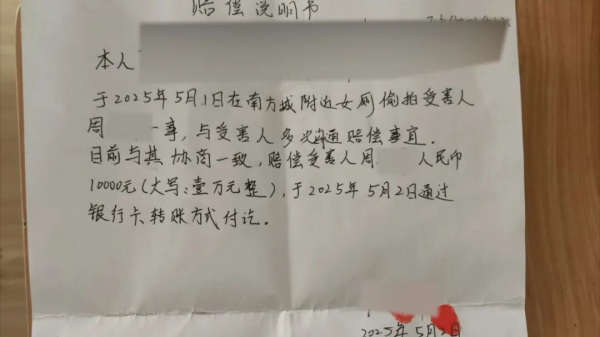 赔偿说明书
本人
于2025年5月1日在南方城附近女厕偷拍受害人
周 一事,与受害人多次沟通赔偿事宜.
目前与其协商一致,赔偿受害人周 人民币
10000元(大写:壹万元整),于2025年5月2日通过
银行卡转账方式付讫.
2025年5月2日